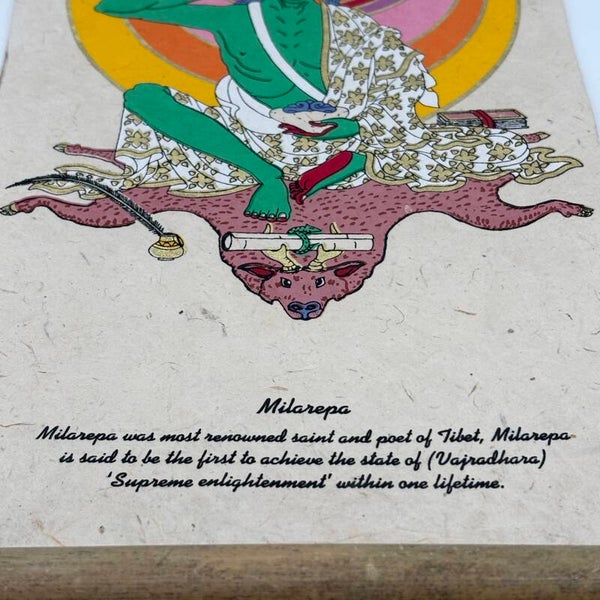 Milarepa
Milarepa was most renowned saint and poet of Tibet, Milarepa
is said to be the first to achieve the state of (Vajradhara)
'Supreme enlightenment' within one lifetime.